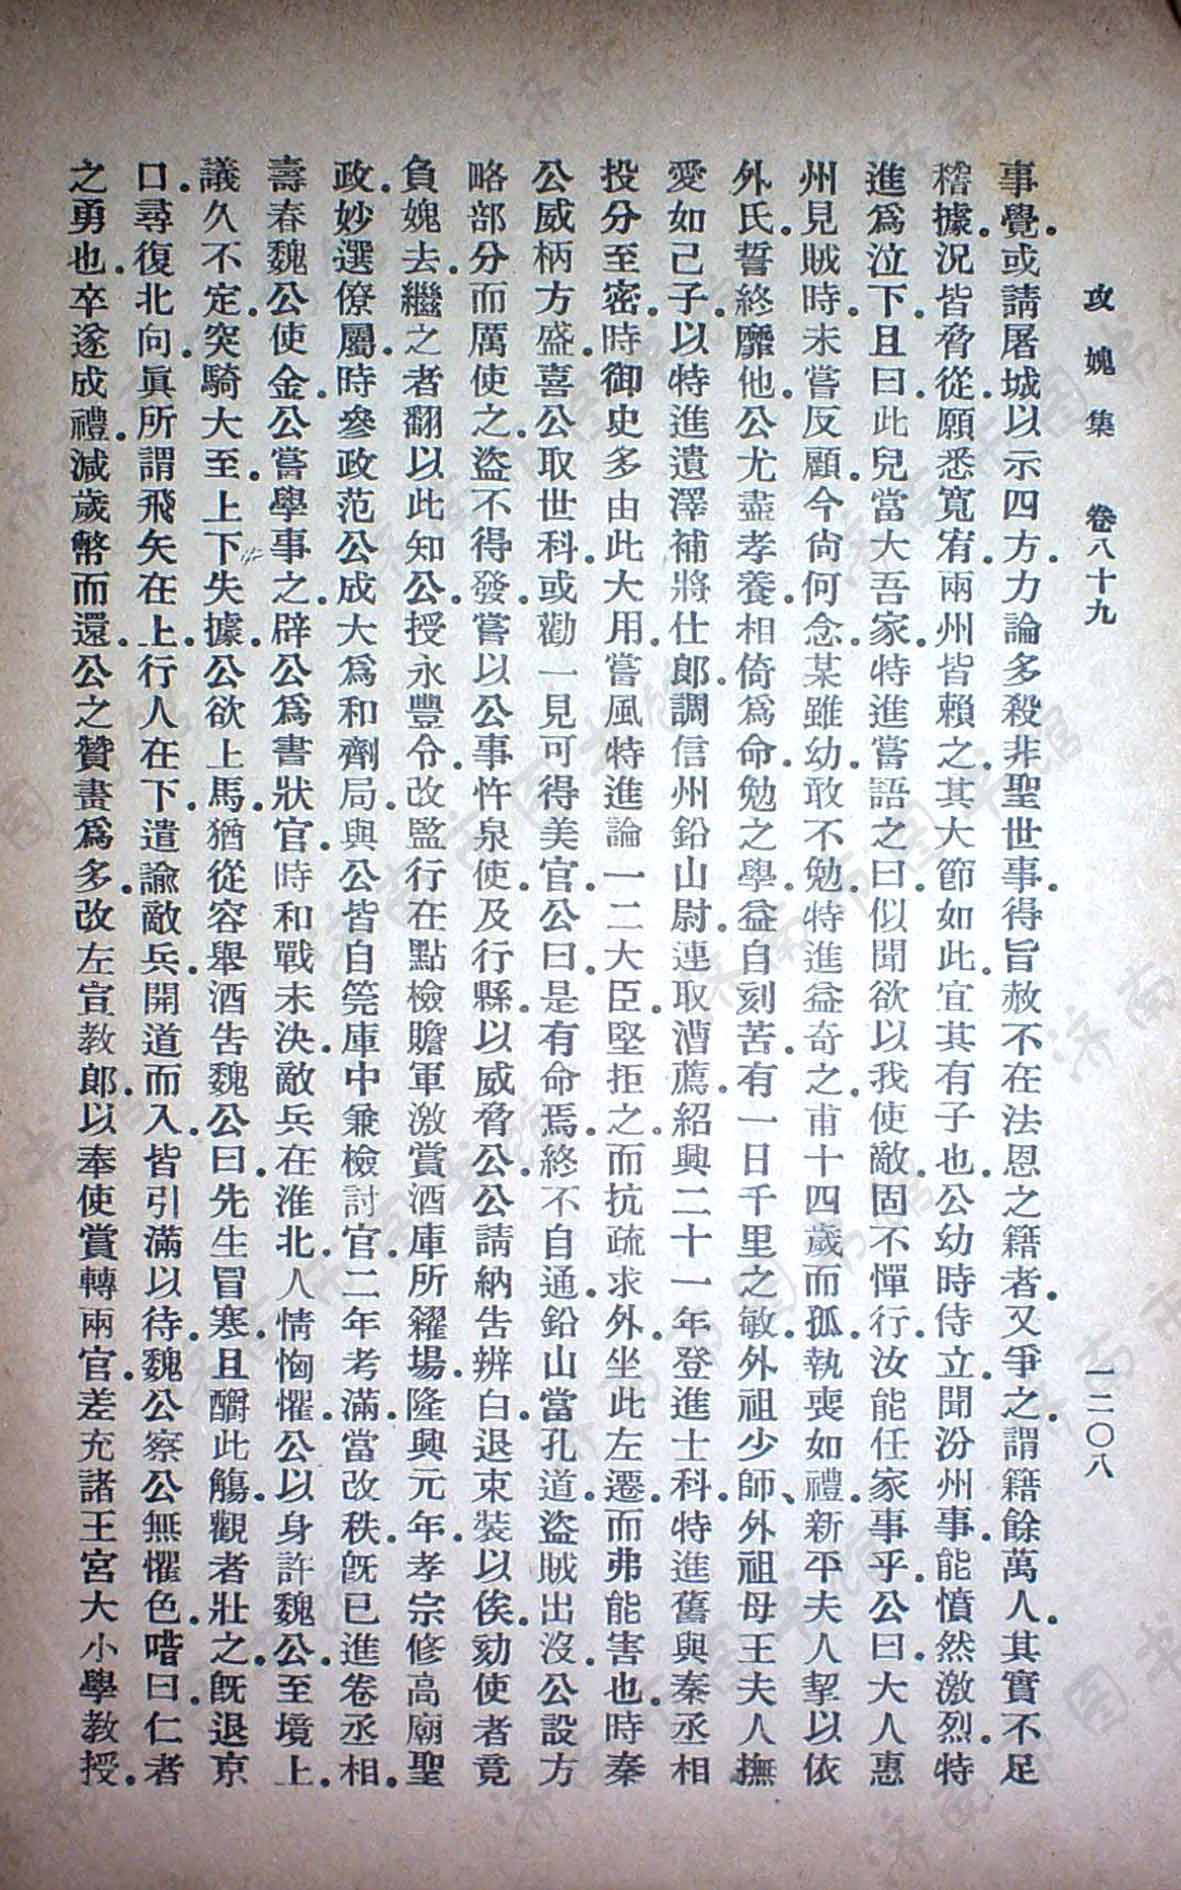 攻媿集 卷八十九 一二〇八
事覺。或請屠城以示四方。力論多殺非聖世事。得旨赦不在法恩之籍者。又爭之。謂籍餘萬人。其實不足
稽據。況皆脅從。願悉寬宥。兩州皆賴之。其大節如此。宜其有子也。公幼時侍立。聞汾州事。能憤然激烈。特
進爲泣下。且曰。此兒當大吾家。特進嘗語之曰。似聞欲以我使敵。固不憚行。汝能任家事乎。公曰。大人惠
州見賊時。未嘗反顧。今尙何念。某雖幼。敢不勉。特進益奇之。甫十四歲而孤。執喪如禮。新平夫人挈以依
外氏。誓終靡他。公尤盡孝養。相倚爲命。勉之學。益自刻苦。有一日千里之敏。外祖少師、外祖母王夫人撫
愛如己子。以特進遺澤補將仕郎。調信州鉛山尉。連取漕薦。紹興二十一年登進士科。特進舊與秦丞相
投分至密。時御史多由此大用。嘗風特進論一二大臣。堅拒之。而抗疏求外。坐此左遷。而弗能害也。時秦
公威柄方盛。喜公取世科。或勸一見可得美官。公曰。是有命焉。終不自通。鉛山當孔道。盜賊出沒。公設方
略部分而厲使之。盜不得發。嘗以公事忤泉使。及行縣。以威脅公。公請納告辨白。退束裝以俟。劾使者竟
負媿去。繼之者翻以此知公。授永豐令。改監行在點檢贍軍激賞酒庫所糴場。隆興元年。孝宗修高廟聖
政。妙選僚屬。時參政范公成大爲和劑局。與公皆自筦庫中兼檢討官。二年考滿。當改秩。旣已進卷。丞相
壽春魏公使金。公嘗學事之。辟公爲書狀官。時和戰未決。敵兵在淮北。人情恟懼。公以身許魏公。至境上。
議久不定。突騎大至。上下失據。公欲上馬。猶從容舉酒告魏公曰。先生冒寒。且釂此觴。觀者壯之。旣退京
口。尋復北向。眞所謂飛矢在上。行人在下。遣諭敵兵。開道而入。皆引滿以待。魏公察公無懼色。唶曰。仁者
之勇也。卒遂成禮。減歲幣而還。公之贊畫爲多。改左宣教郎。以奉使賞轉兩官。差充諸王宮大小學教授。